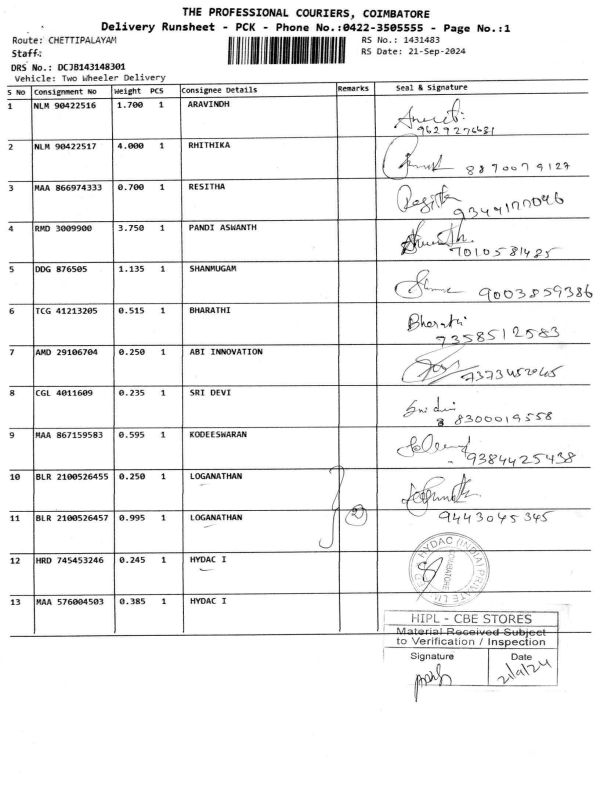 THE PROFESSIONAL COURIERS, COIMBATORE
Delivery Runsheet - PCK - Phone No.:0422-3505555 - Page No.:1
Route: CHETTIPALAYAM
RS No.: 1431483
Staff:
RS Date: 21-Sep-2024
DRS No.: DCJB143148301
Vehicle: Two Wheeler Delivery
S No Consignment No Weight PCS Consignee Details Remarks Seal & Signature
1 NLM 90422516 1.700 1 ARAVINDH
9629276681
2 NLM 90422517 4.000 1 RHITHIKA
8870079127
3 MAA 866974333 0.700 1 RESITHA
9344177046
4 RMD 3009900 3.750 1 PANDI ASWANTH
7010581485
5 DDG 876505 1.135 1 SHANMUGAM
9003859386
6 TCG 41213205 0.515 1 BHARATHI Bharathi
7358512583
7 AMD 29106704 0.250 1 ABI INNOVATION
7373452045
8 CGL 4011609 0.235 1 SRI DEVI
8300019558
9 MAA 867159583 0.595 1 KODEESWARAN
9384425438
10 BLR 2100526455 0.250 1 LOGANATHAN
2
11 BLR 2100526457 0.995 1 LOGANATHAN 9443045345
12 HRD 745453246 0.245 1 HYDAC I
HYDAC (INDIA) PRIVATE LIM
COIMBATORE
13 MAA 576004503 0.385 1 HYDAC I
HIPL - CBE STORES
Material Received Subject
to Verification / Inspection
Signature Date
21/9/24